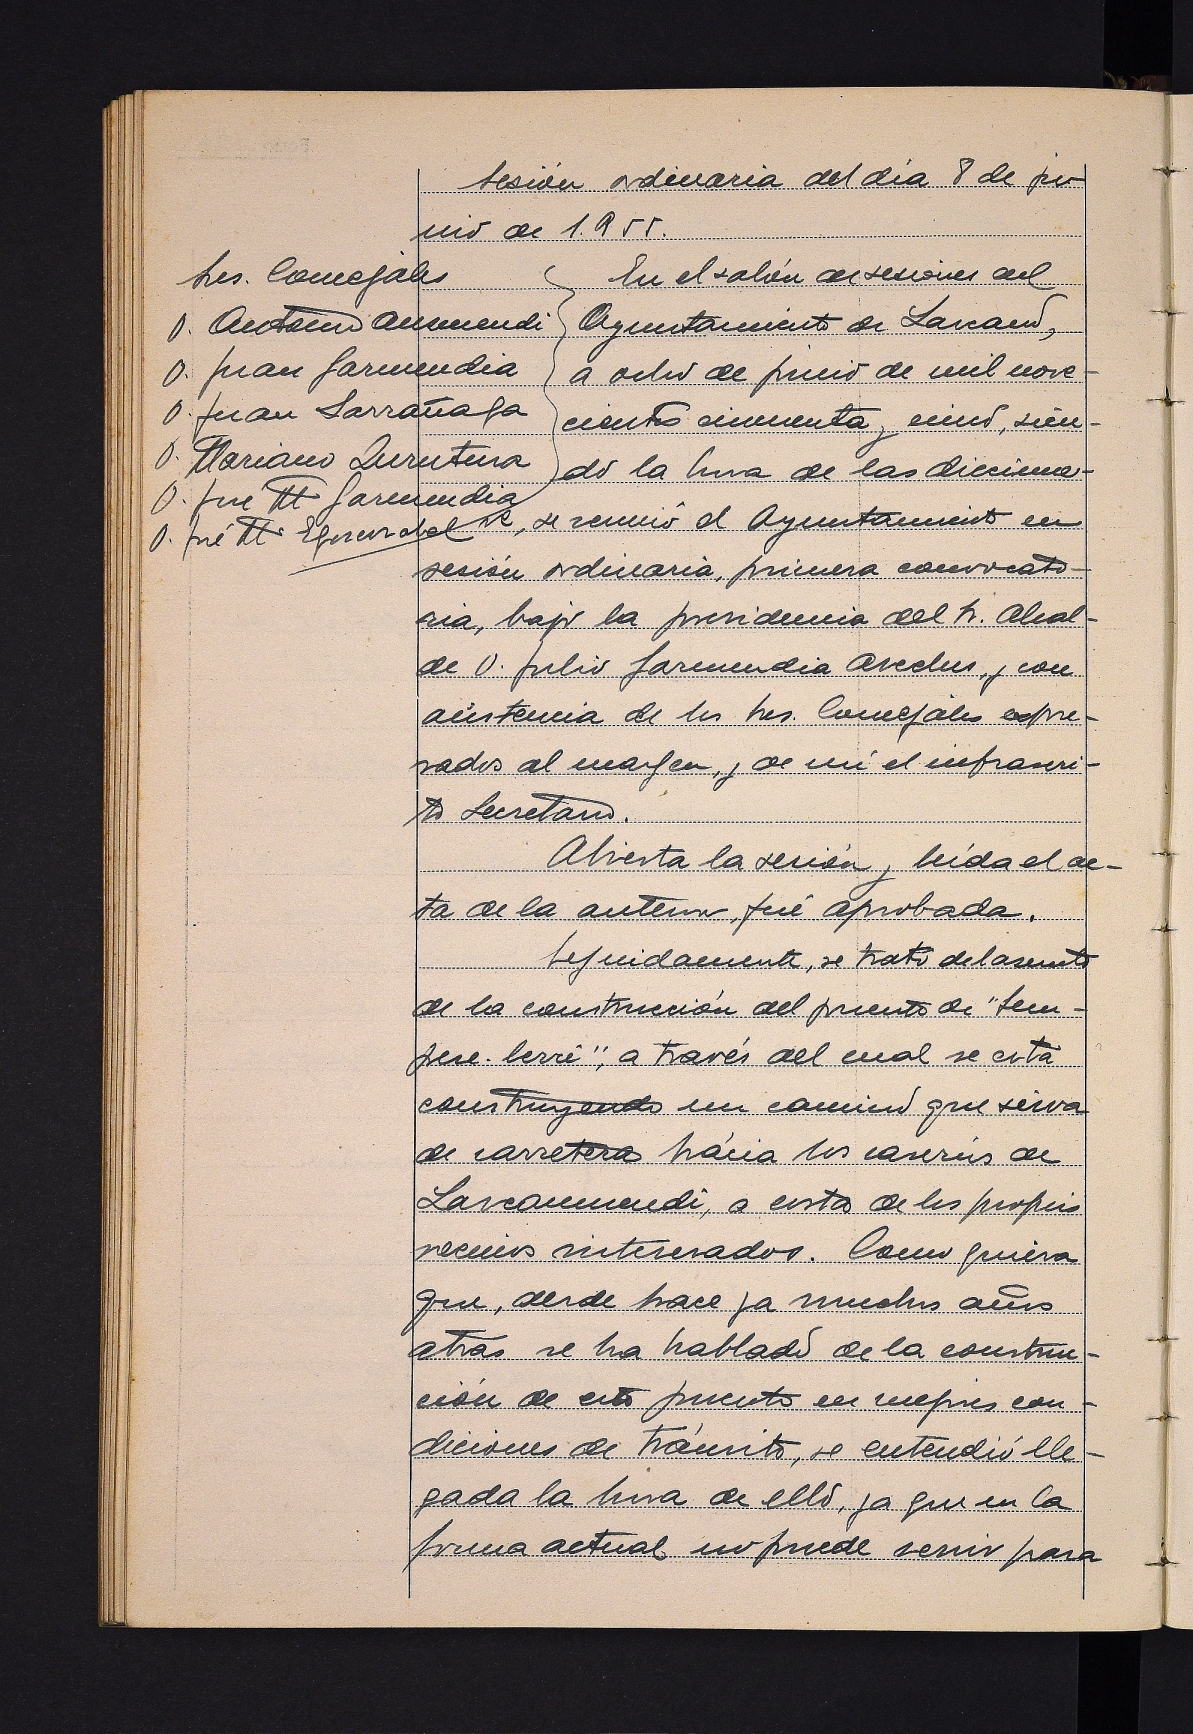 Sesión ordinaria del día 8 de ju-
nio de 1.955.
Sres. Concejales
D. Antonio Ausmendi
D. Juan Garmendia
D. Juan Larrañaga
D. Mariano Urrutena
D. José Mª Garmendia
D. José Mª
En el salón de sesiones del
Ayuntamiento de Lazcano,
a ocho de junio de mil nove-
cientos cincuenta y cinco, sien-
do la hora de las diecinue-
ve, se reunió el Ayuntamiento en
sesión ordinaria, primera convocato-
ria, bajo la presidencia del Sr. Alcal-
de D. Julio Garmendia Arechus, y con
asistencia de los Sres. Concejales expre-
sados al margen, y de mí el infrascri-
to Secretario.
Abierta la sesión y leída el ac-
ta de la anterior, fué aprobada.
Seguidamente, se trató del asunto
de la construcción del puente de "Sem-
pere-berri", a través del cual se está
construyendo un camino que sirva
de carretera hácia los caseríos de
Lazcaomendi, a costa de los propios
vecinos interesados. Como quiera
que, desde hace ya muchos años
atras se ha hablado de la construc-
ción de este puente en mejores con-
diciones de tránsito, se entendió lle-
gada la hora de ello, ya que en la
forma actual no puede servir para